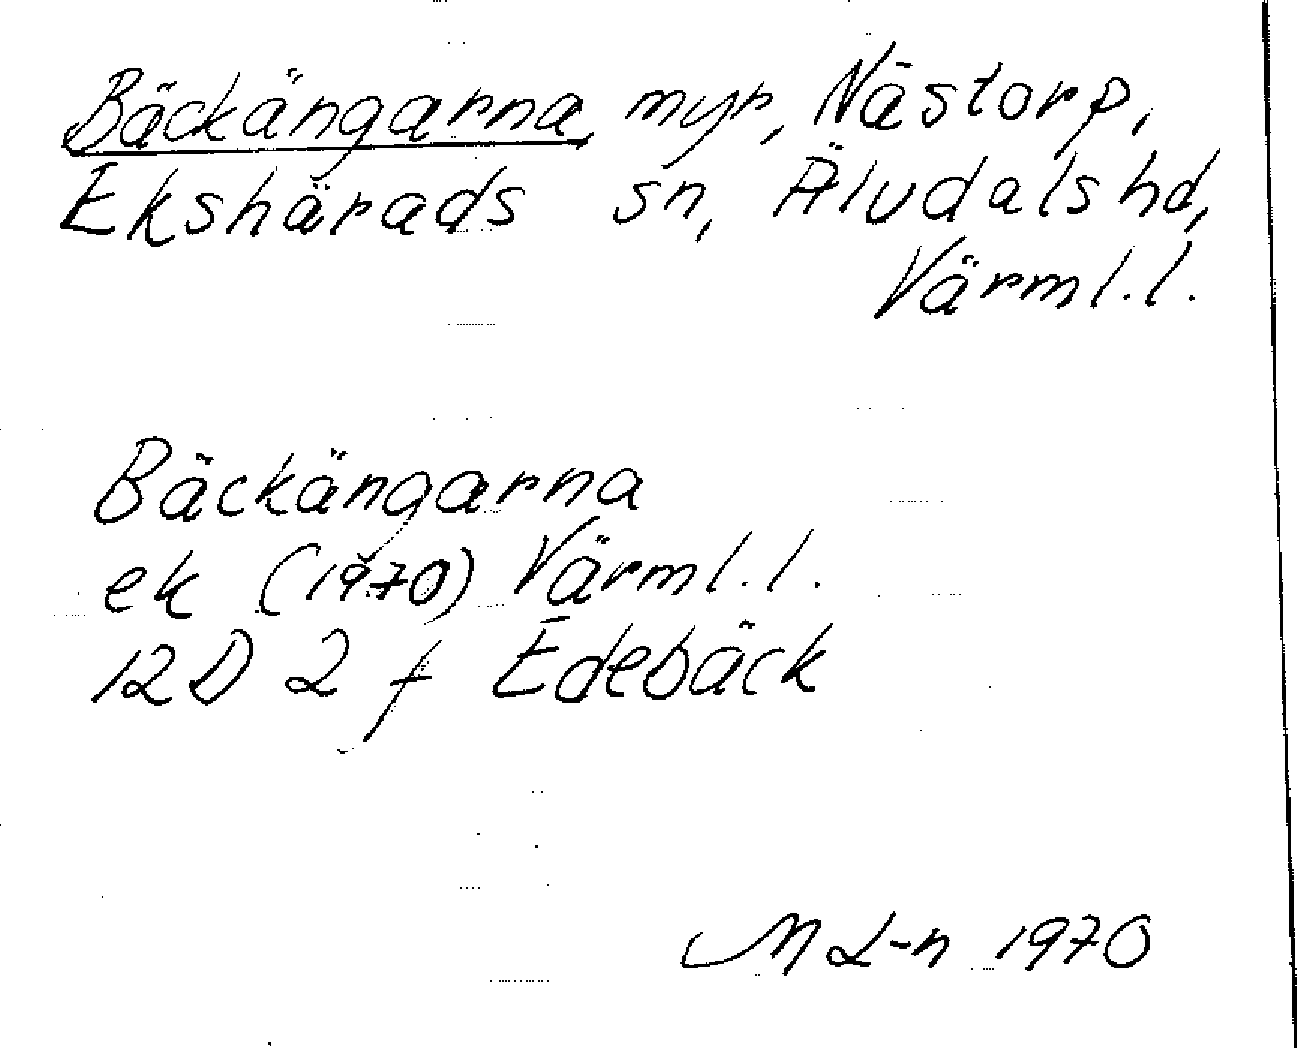 Bäckängarna, myr, Nästorp,
Ekshärads sn, Älvdals hd,
Värml.l.
Bäckängarna
ek (1970) Värml.l.
12D 2 f Edebäck
M L-n 1970